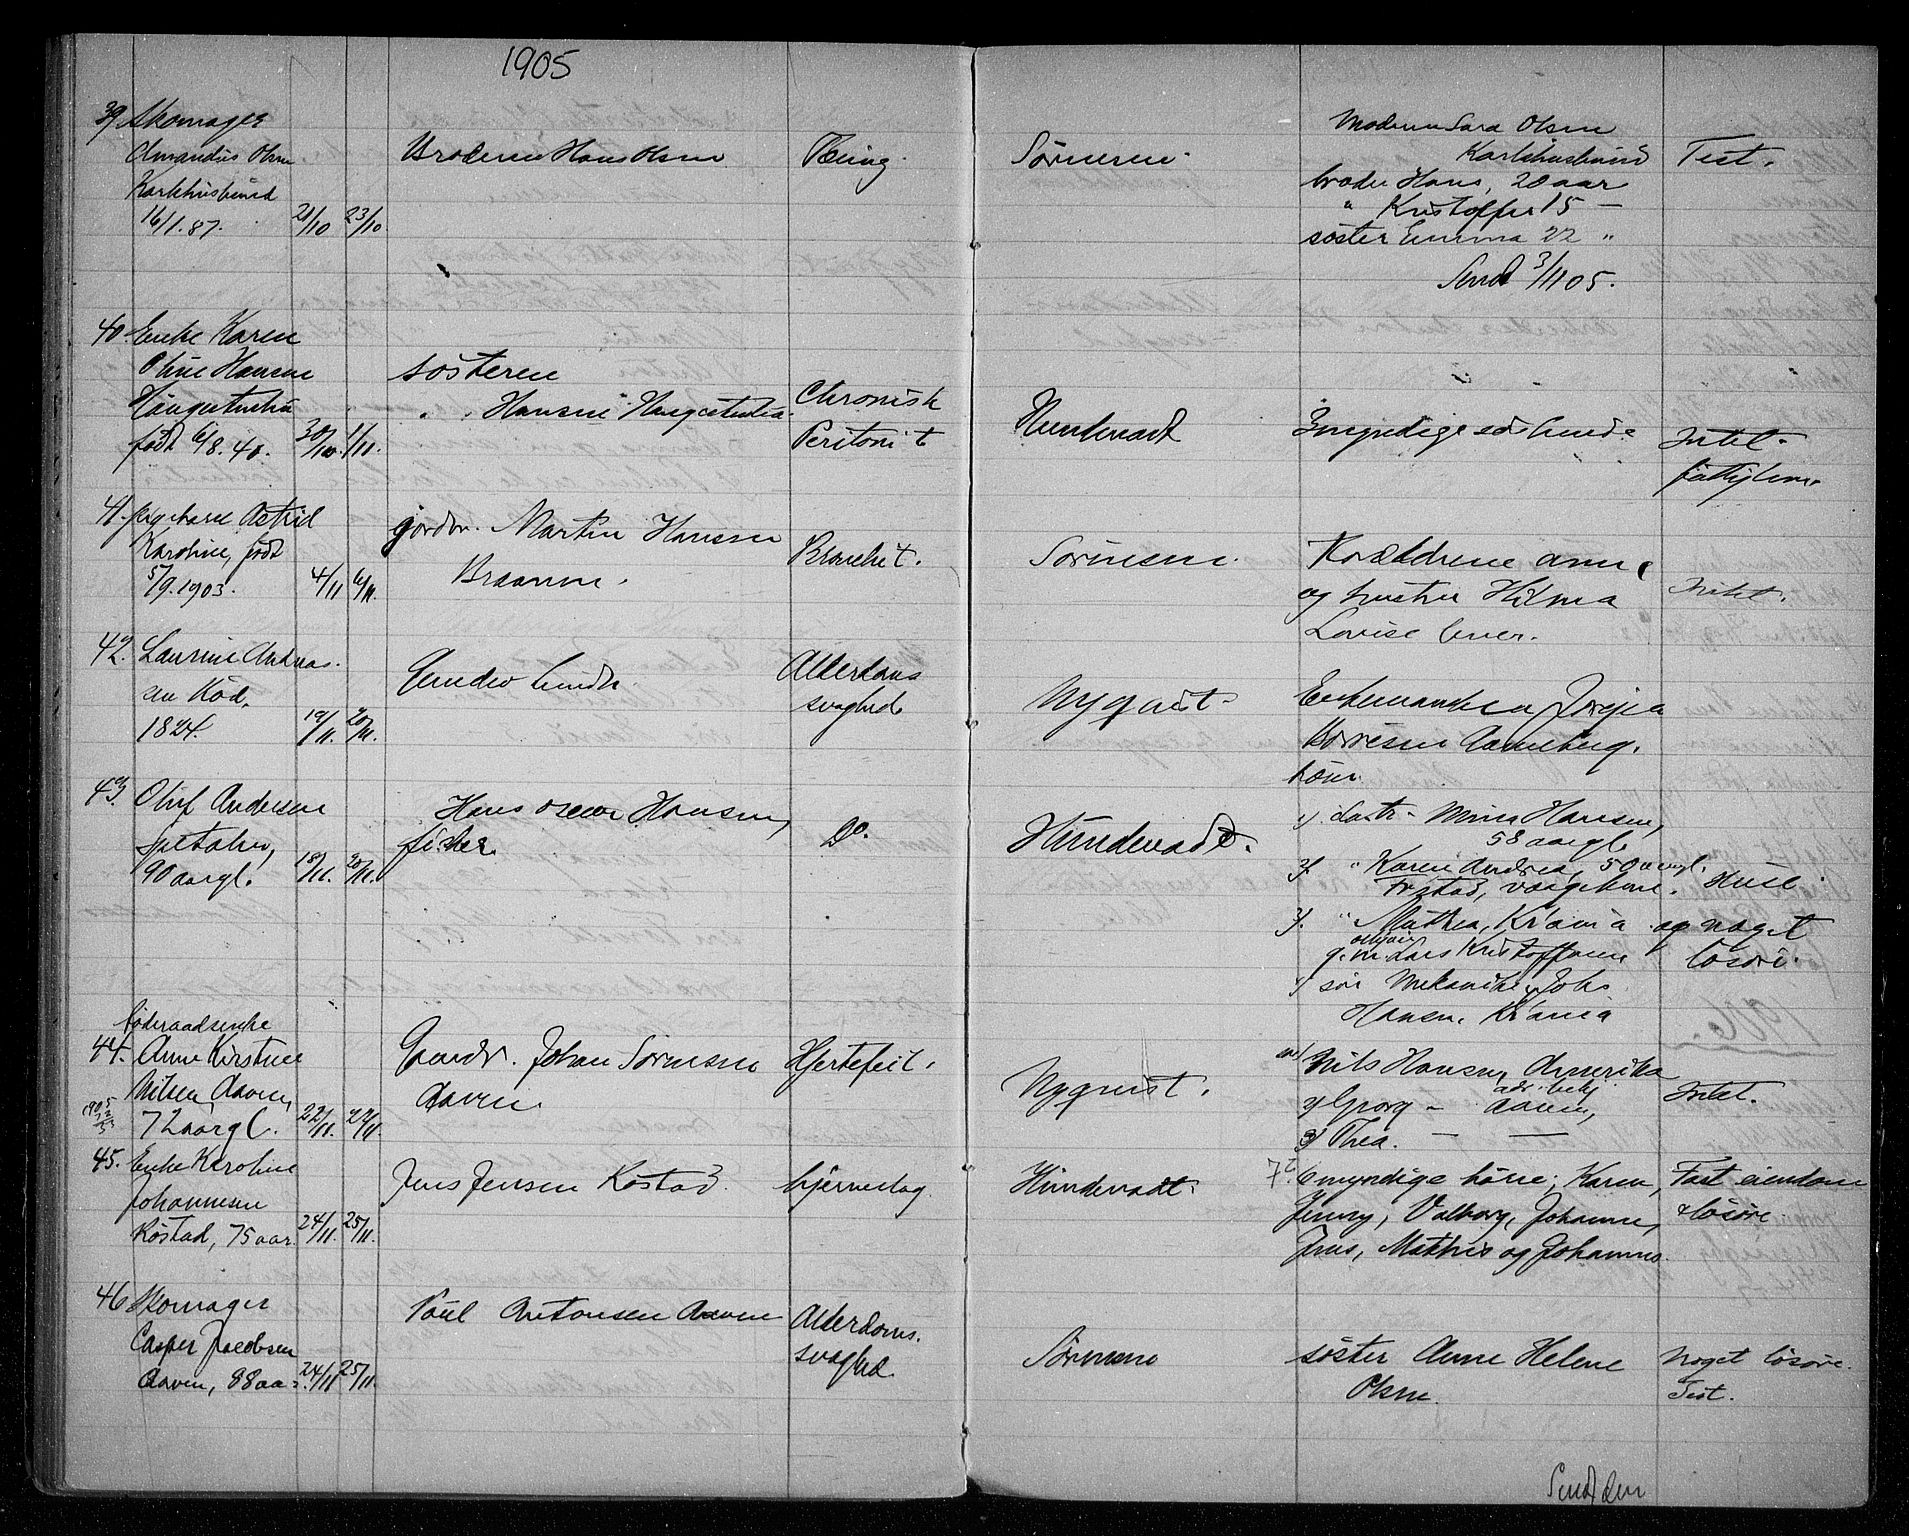 1905
39. Skomager
Amandus Olsen
Karlshusbund
16/1.87. 21/10 23/10
Broderen Hans Olsen
Tæring.
Sørensen.
Moderen Sara Olsen
Karlshusbund
broder Hans, 20 aar
" Kristoffer 15 —
søster Emma 22 "
Send 3/11 05.
Test.
40. Enke Karen
Oline Hansen
Haugestuen
født 6/8.40. 30/10. 1/11.
søsteren
Hansen Haugestuen
Chronisk
Peritonit
Hundevadt
Emyndige søskende
Intet.
fattiglem.
41. pigebarn Astrid
Karoline, født
5/9.1903. 4/11 6/11.
gårdbr. Martin Hansen
Braanen.
Bronchit.
Sørensen.
Forældrene anm.
og hustru Hilma
Lovise
Intet.
42. Laurine Andreas-
sen Kød.
1824. 19/11. 20/11.
Gunder Lunde.
Alderdoms
svaghed
Nyquist.
Enkemanden
Børresen
43. Oluf Andersen
90 aargl. 18/11. 20/11.
Hans Oscar Hansen,
fisker.
Do.
Hundevadt.
børn
1) datr. Mina Hansen,
58 aargl
2) " Karen Andrea, 50 aargl.
Huse
3) " Mathea, Kr.ania
og noget
g.m. Lars Kristoffersen
løsøre.
4) søn Mekaniker Johs.
Hansen, Kr.ania
føderaadsenke
44. Anne Kirstine
Nilsen, Aaven,
72 aargl. 22/11. 24/11
Gaardbr. Johan Sørensen
Aaven.
Hjertefeil.
Nyquist.
1) Nils Hansen, Amerika
2) Georg — Aaven,
3) Thea. — —
Intet.
45. Enke Karoline
Johannesen
Køstad, 75 aar. 24/11. 25/11.
Jens Jensen Køstad.
hjerneslag.
Hundevadt.
7 myndige børn; Karen,
Jenny, Valborg, Johanne,
Jens, Mathis og Johannes.
Fast eiendom
& løsøre.
46. Skomager
Casper Jacobsen
Aaven, 88 aar 24/11 25/11.
Paul Antonsen Aaven
Alderdoms.
svaghed.
Sørensen
søster Anne Helene
Olsen.
Noget løsøre.
Test.
Send den